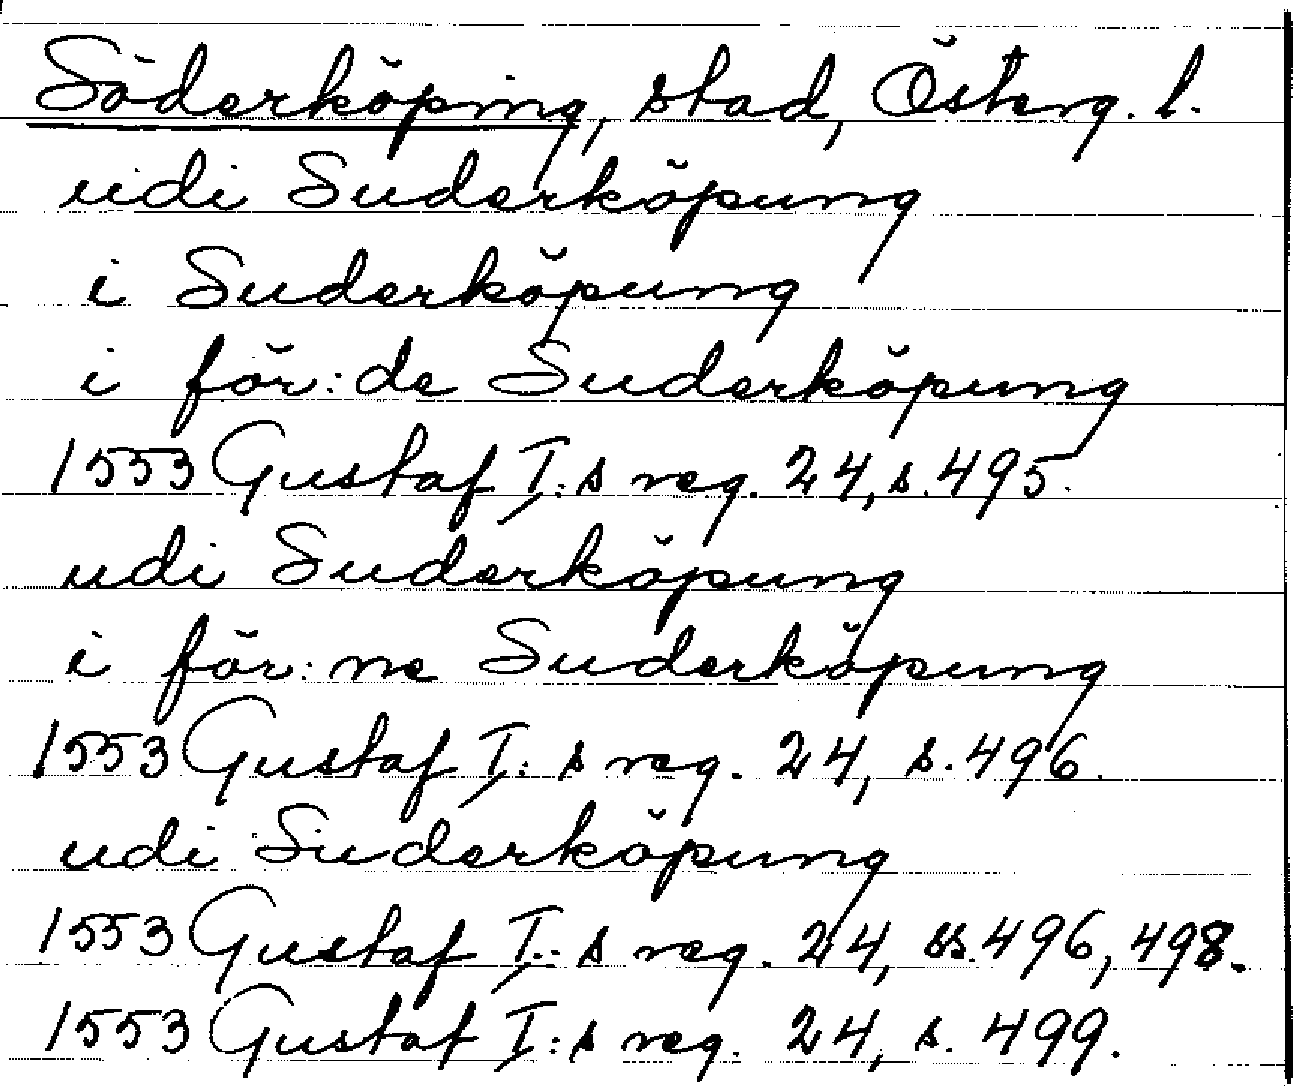 Söderköping, stad, Österg. l.
udi Suderköpung
i Suderköpung
i för:de Suderköpung
1553 Gustaf I:s reg. 24, s. 495.
udi Suderköpung
i för:ne Suderköpung
1553 Gustaf I:s reg. 24, s. 496.
udi Suderköpung
1553 Gustaf I:s reg. 24, ss. 496, 498.
1553 Gustaf I:s reg. 24, s. 499.